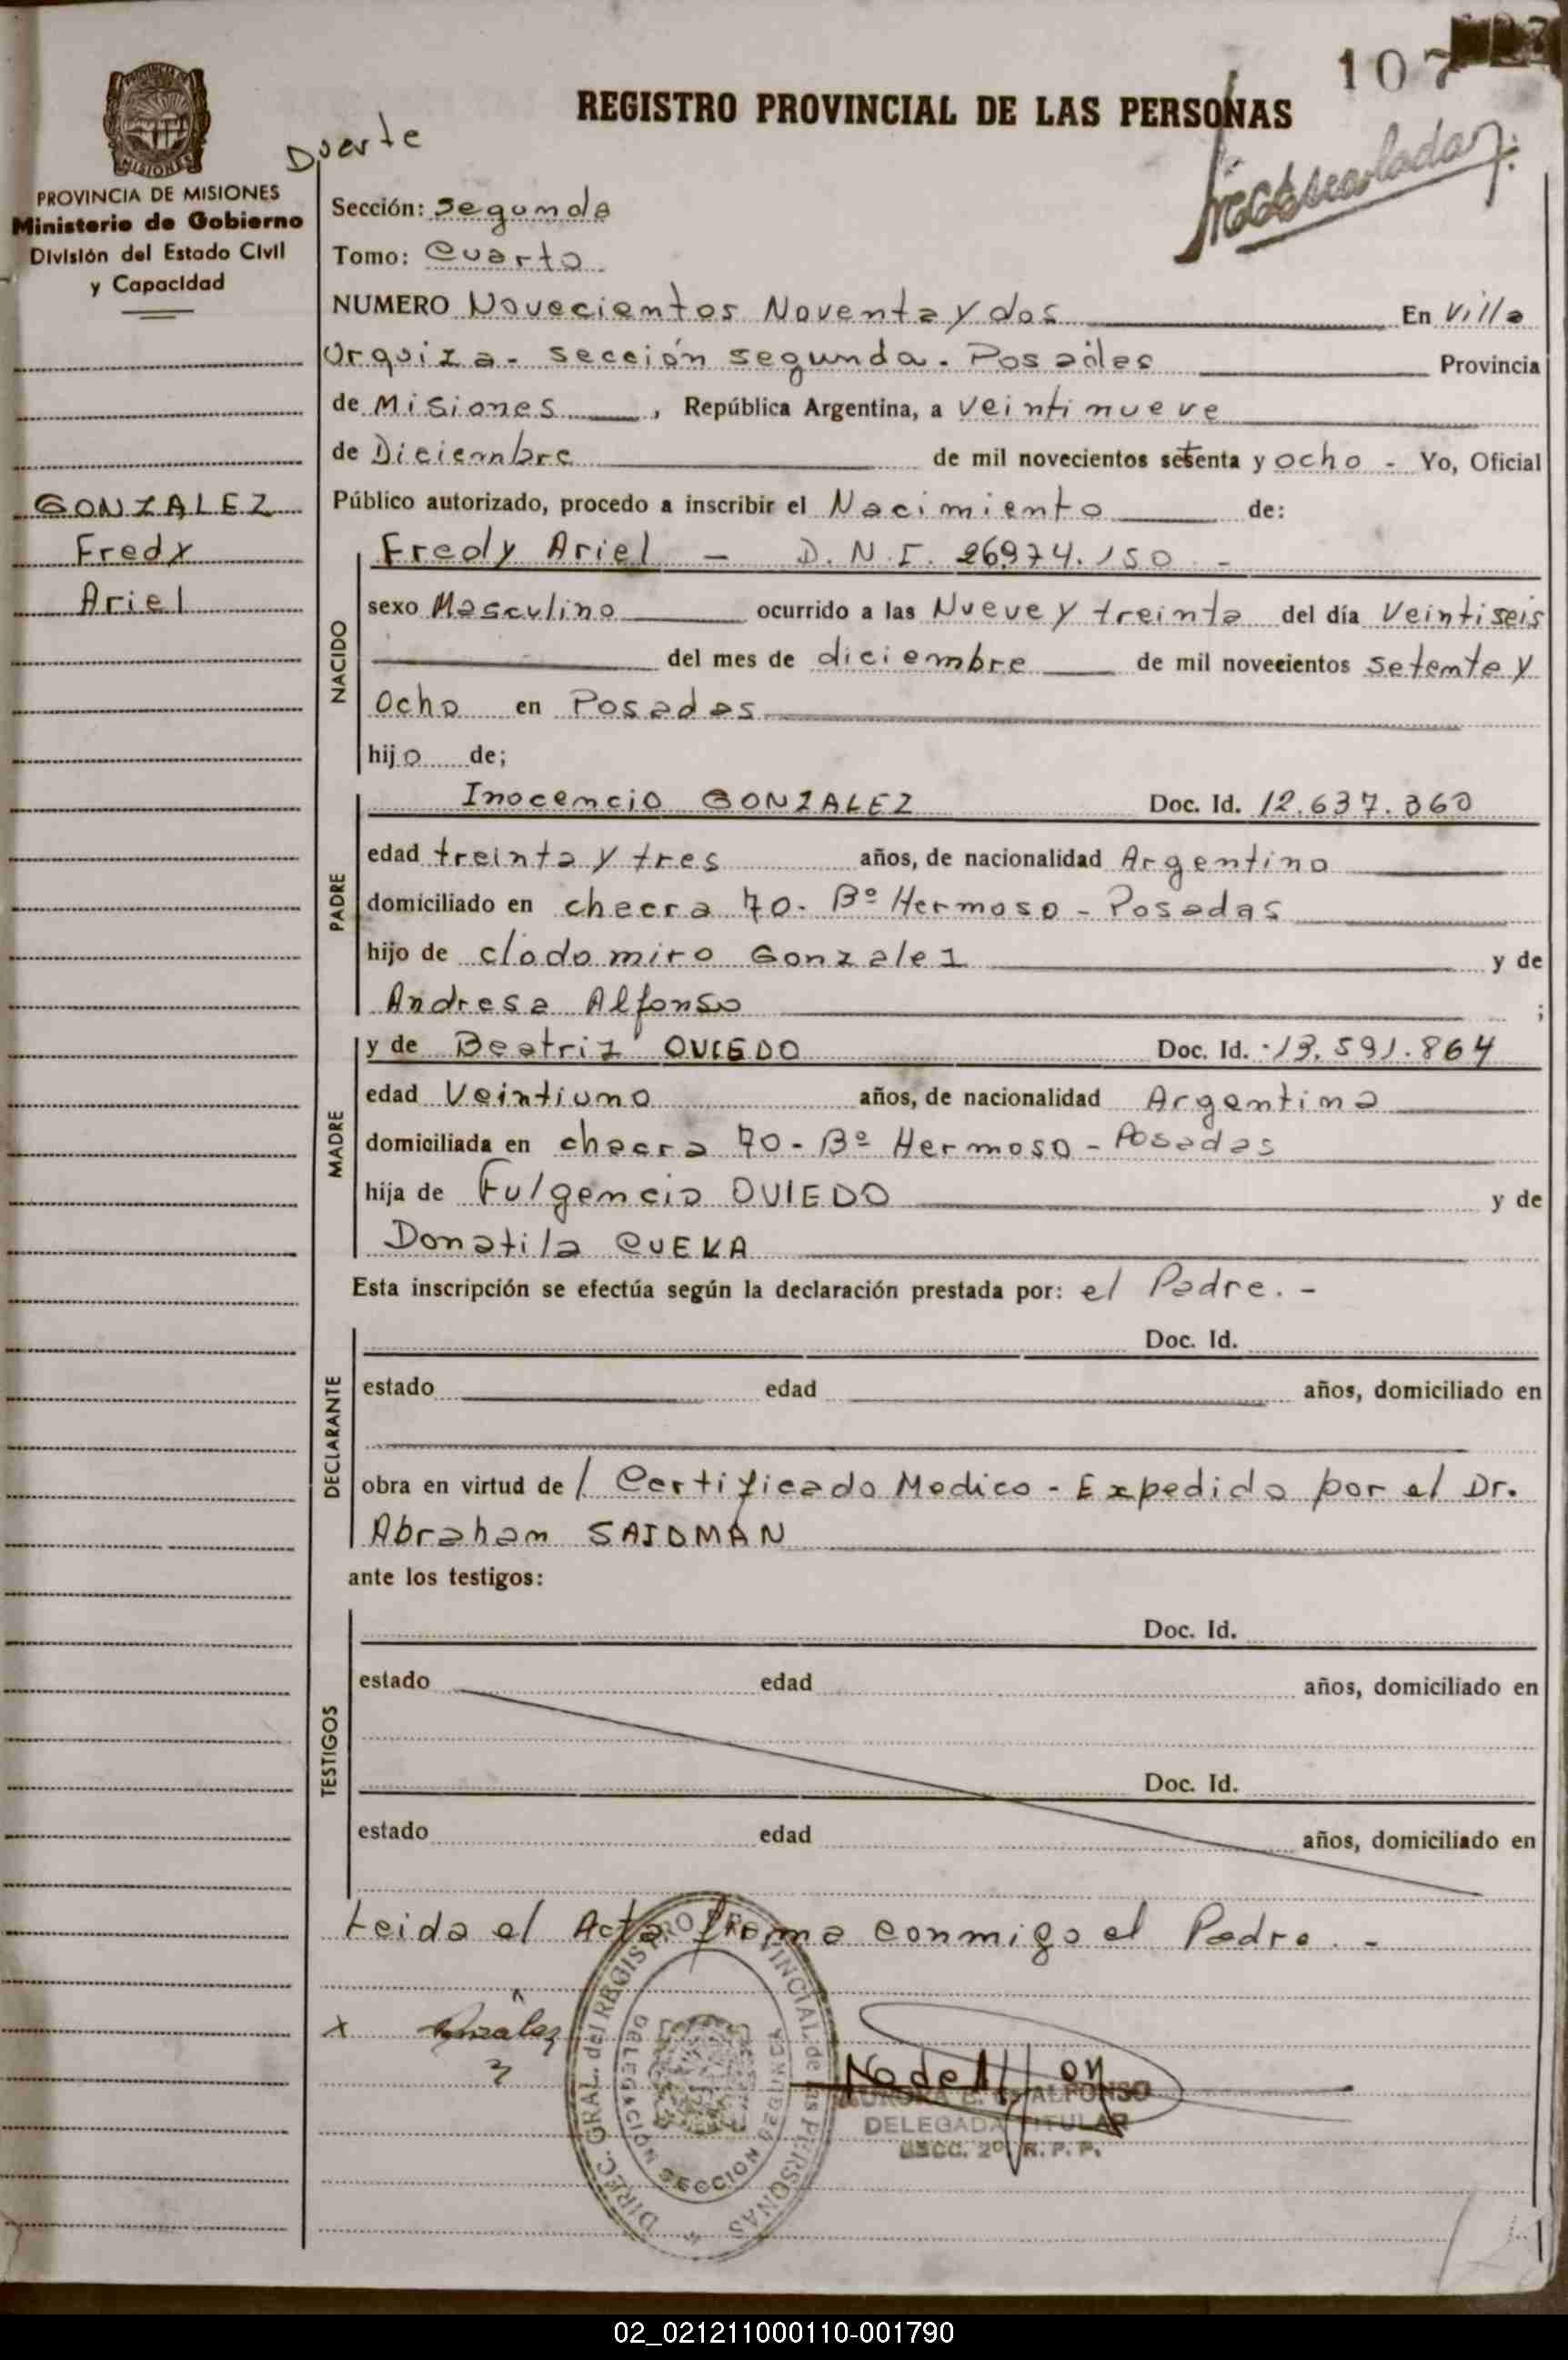 107
REGISTRO PROVINCIAL DE LAS PERSONAS
Duarte
MISIONES
PROVINCIA DE MISIONES
Ministerio de Gobierno
División del Estado Civil
y Capacidad
Sección: Segunda
Tomo: Cuarto
NUMERO Novecientos Noventa y dos En Villa
Urquiza - sección segunda - Posadas Provincia
de Misiones, República Argentina, a veintinueve
de Diciembre de mil novecientos setenta y ocho - Yo, Oficial
Público autorizado, procedo a inscribir el Nacimiento de:
GONZALEZ
Fredy
Ariel
NACIDO
Fredy Ariel - D.N.I. 26974.150 -
sexo Masculino ocurrido a las Nueve y treinta del día Veintiseis
del mes de diciembre de mil novecientos setenta y
Ocho en Posadas
hijo de;
PADRE
Inocencio GONZALEZ Doc. Id. 12.637.360
edad treinta y tres años, de nacionalidad Argentino
domiciliado en chacra 70 - Bº Hermoso - Posadas
hijo de clodomiro Gonzalez y de
Andresa Alfonso ;
MADRE
y de Beatriz OVIEDO Doc. Id. 13.591.864
edad Veintiuno años, de nacionalidad Argentina
domiciliada en chacra 70 - Bº Hermoso - Posadas
hija de Fulgencio OVIEDO y de
Donatila CUEVA
Esta inscripción se efectúa según la declaración prestada por: el Padre. -
DECLARANTE
Doc. Id.
estado edad años, domiciliado en
obra en virtud de / Certificado Medico - Expedido por el Dr.
Abraham SAIDMAN
ante los testigos:
TESTIGOS
Doc. Id.
estado edad años, domiciliado en
Doc. Id.
estado edad años, domiciliado en
Leida el Acta firma conmigo el Padre. -
x Gonzalez
DIREC. GRAL. del REGISTRO PROVINCIAL de las PERSONAS
DELEGACION SECCION
ALFONSO
DELEGADA TITULAR
SECC. 2º R. P. P.
02_021211000110-001790